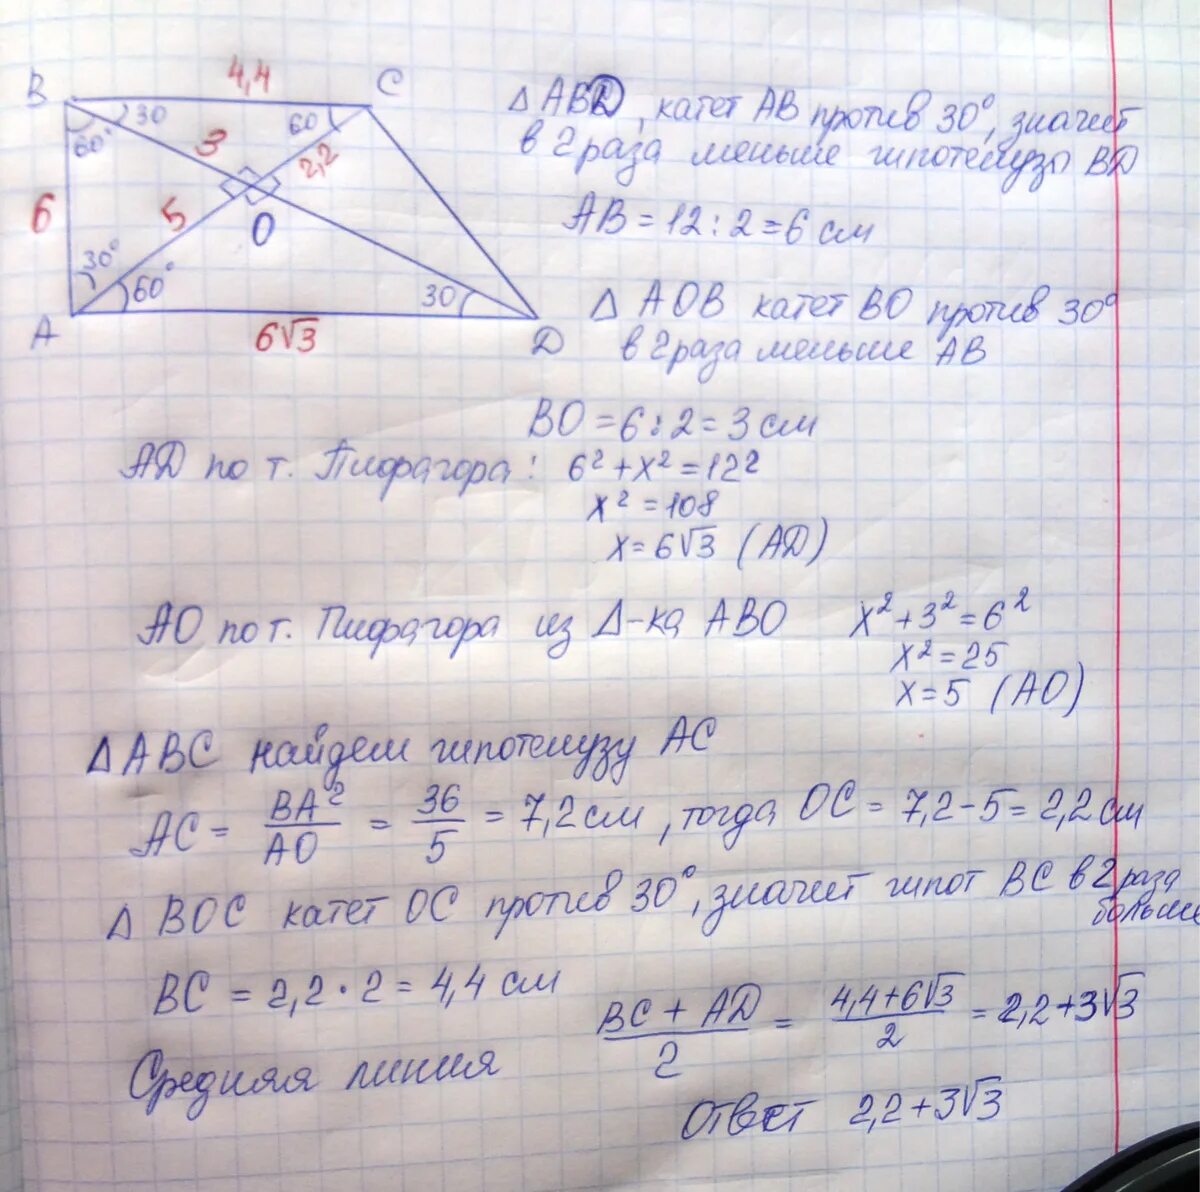 В 4,4 С
30 60
60° 3 2,2
6 5 О
30° 60° 30
А 6√3 Д
Δ АВД, катет АВ против 30°, значит
в 2 раза меньше гипотенузы ВD
АВ = 12 : 2 = 6 см
Δ АОВ катет ВО против 30°
в 2 раза меньше АВ
ВО = 6 : 2 = 3 см
АД по т. Пифагора : 6² + х² = 12²
х² = 108
х = 6√3 (АД)
АО по т. Пифагора из Δ-ка АВО х² + 3² = 6²
х² = 25
х = 5 (АО)
Δ АВС найдем гипотенузу АС
АС = ВА²/АО = 36/5 = 7,2 см, тогда ОС = 7,2 - 5 = 2,2 см
Δ ВОС катет ОС против 30°, значит гипот ВС в 2 раза
больше
ВС = 2,2 · 2 = 4,4 см
Средняя линия (ВС + АД)/2 = (4,4 + 6√3)/2 = 2,2 + 3√3
Ответ 2,2 + 3√3